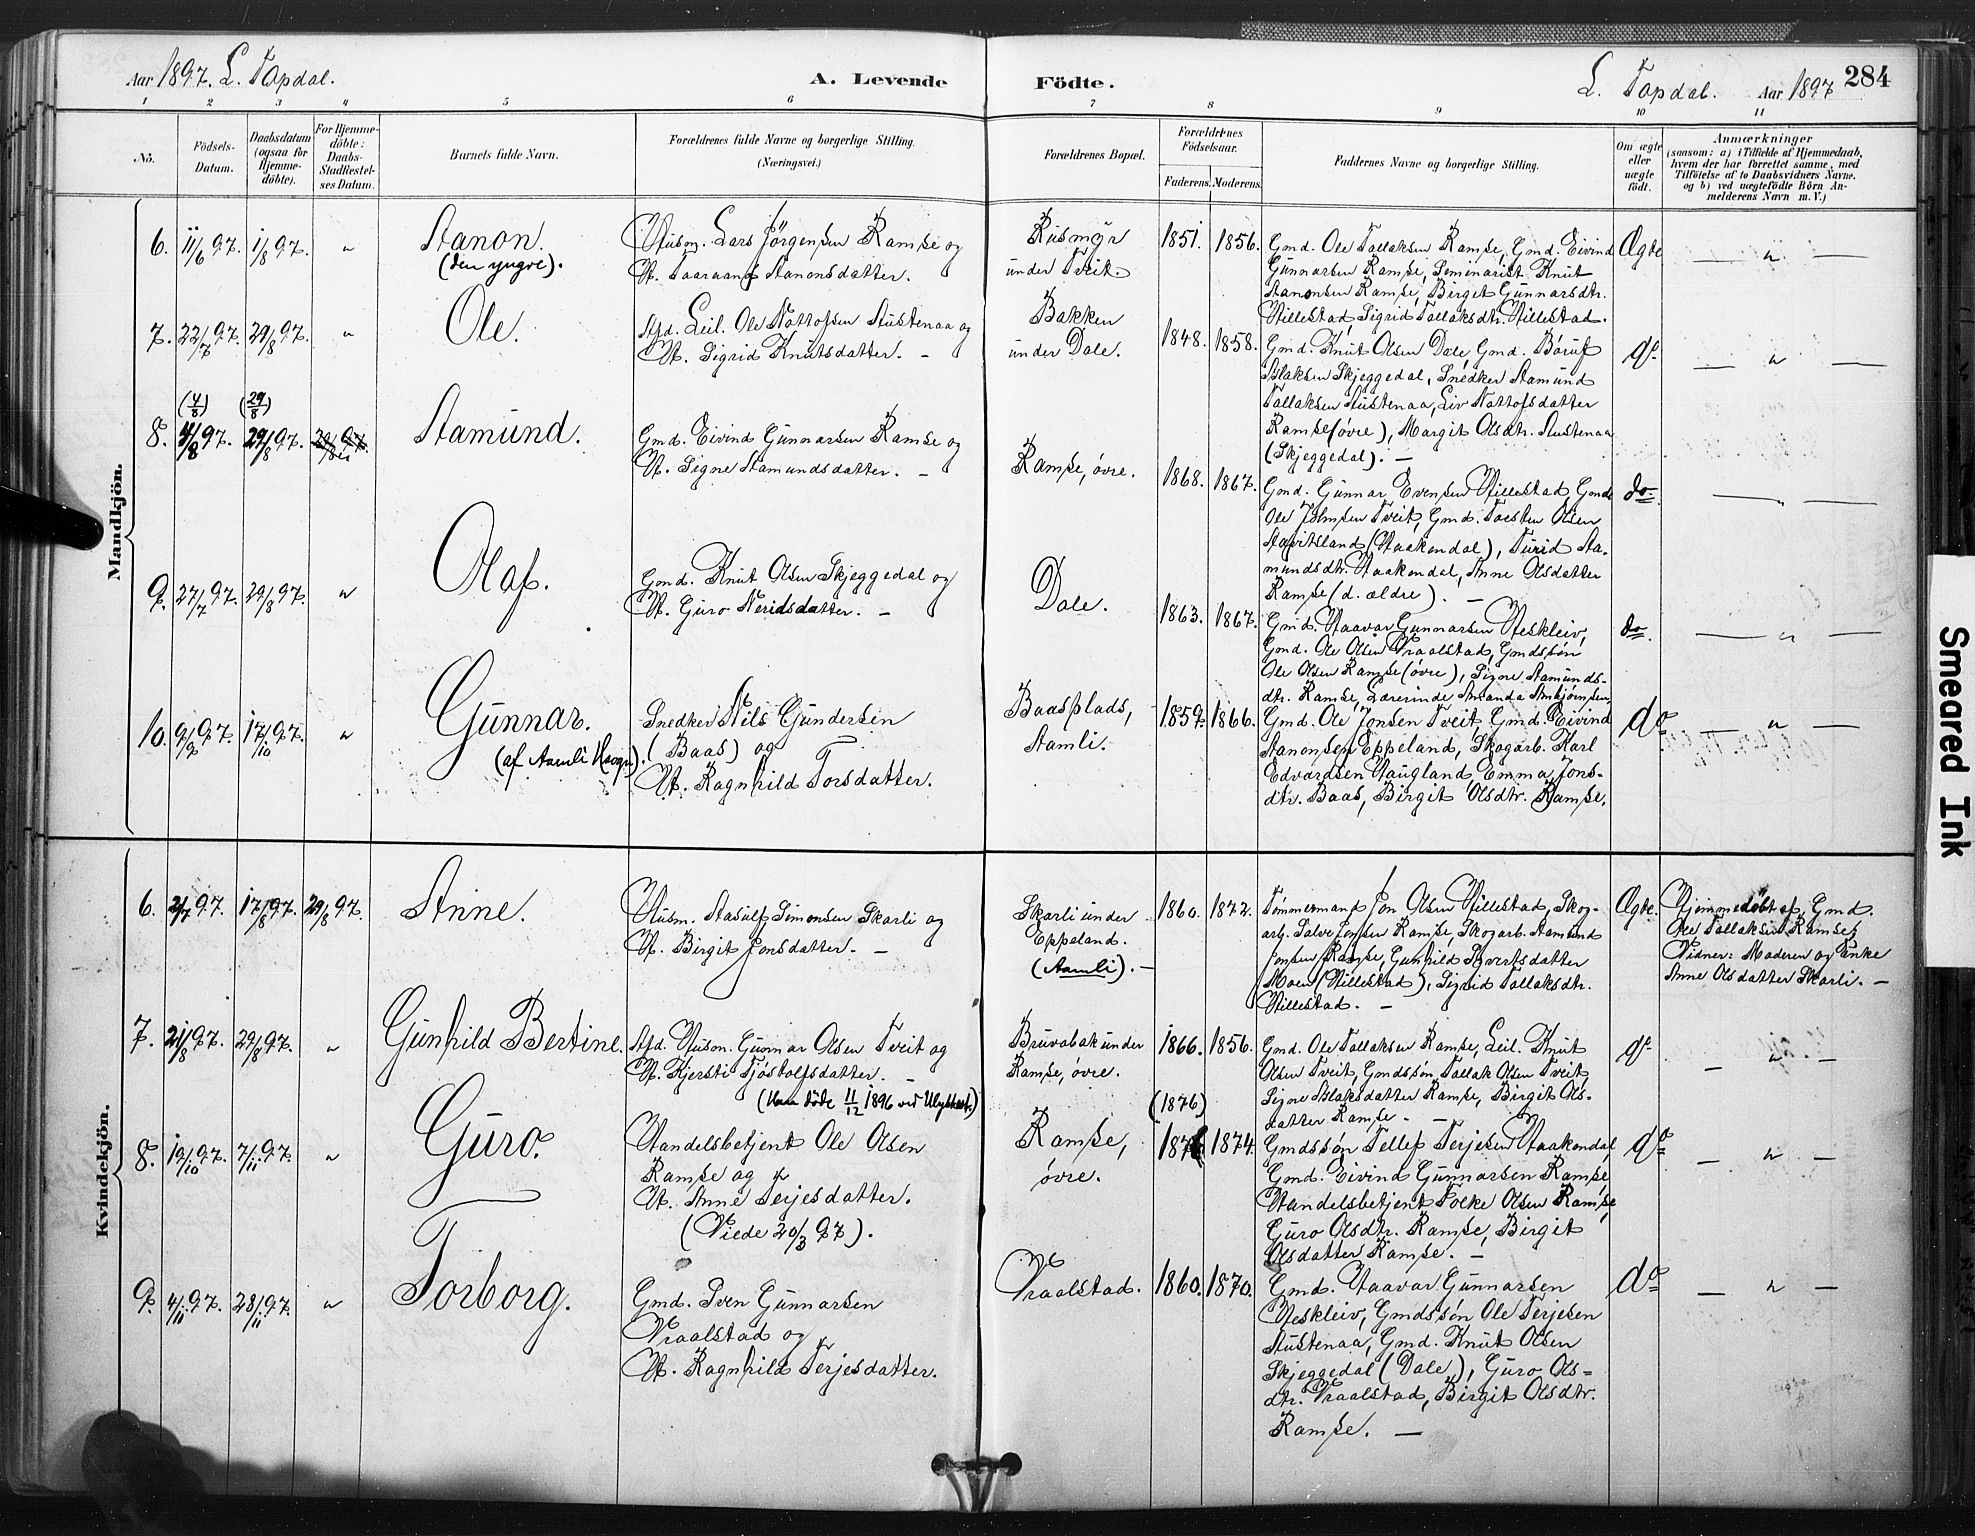 Aar 1897. L. Topdal.
A. Levende Fødte.
L. Topdal. Aar 1897 284
1 2 3 4 5 6 7 8 9 10 11
No.
Fødsels-Datum.
Daabsdatum (ogsaa for Hjemme-döbte).
For Hjemme-döbte: Daabs-Stadfæstel-ses Datum.
Barnets fulde Navn.
Forældrenes fulde Navne og borgerlige Stilling.
(Næringsvei.)
Forældrenes Bopæl.
Forældrenes Födselsaar.
Faderens. Moderens.
Faddernes Navne og borgerlige Stilling.
Om ægte eller uægte födt.
Anmærkninger
(saasom: a) i Tilfælde af Hjemmedaab,
hvem der har forrettet samme, med
Tilföielse af to Daabsvidners Navne,
og b) ved uægtefödte Börn An-
melderens Navn m. V.)
Mandkjön.
6. 11/6 97. 1/8 97. "
Aanon.
(den yngre).
Husm. Lars Jørgensen Ramse og
H. Taaraand Aanonsdatter.
Rusmyr
under Tveit.
1851. 1856.
Gmd. Ole Tallaksen Ramse, Gmd. Eivind
Gunnarsen Ramse, Seminarist Knut
Aanonsen Ramse, Birget Gunnarsdtr.
Hillestad, Sigrid Tallaksdtr. Hillestad.
Ægte
— " —
7. 22/7 97. 29/8 97. "
Ole.
Afd. Leil. Ole Nottofsen Austenaa og
H. Sigrid Knutsdatter. –
Bakken
under Dale.
1848. 1858.
Gmd. Knut Olsen Dale, Gmd. Børuf
Aslaksen Skjeggedal, Snedker Aamund
Tallaksen Austenaa, Liv Nottofsdatter
Ramse (øvre), Margit Olsdtr. Austenaa
(Skjeggedal). —
do.
— " —
(4/8) (29/8)
8. 4/8 97. 29/8 97.
Aamund.
Gmd. Eivind Gunnarsen Ramse og
H. Signe Aamundsdatter. –
Ramse, øvre.
1868. 1867.
Gmd. Gunnar Evensen Hillestad, Gmd.
Ole Johnsen Tveit, Gmd. Torsten Olsen
Aavitsland (Haakendal), Turid Aa-
mundsdtr. Haakendal, Anne Olsdatter
Ramse (d. ældre). —
do.
— " —
9. 27/7 97. 29/8 97. "
Olaf.
Gmd. Knut Olsen Skjeggedal og
H. Guro Neridsdatter. –
Dale.
1863. 1867.
Gmd. Haavar Gunnarsen Neskleiv,
Gmd. Ole Olsen Vraalstad, Gmdssøn
Ole Olsen Ramse (øvre), Signe Aamunds-
dtr. Ramse, Lærerinde Amanda Ambjørnsen
do.
— " —
10. 9/9 97. 17/10 97. "
Gunnar.
(af Aamli Hsogn).
Snedker Nils Gundersen
(Baas) og
H. Ragnhild Torsdatter.
Baasplads,
Aamli.
1859. 1866.
Gmd. Ole Jonsen Tveit, Gmd. Eivind
Aanonsen Eppeland, Skogarb. Karl
Edvardsen Haugland, Emma Jons-
dtr. Baas, Birgit Olsdtr. Ramse.
do
— " —
Kvindekjön.
6. 2/7 97. 17/8 97. 29/8 97.
Anne.
Husm. Aasulf Simonsen Skarli og
H. Birgit Jonsdatter. –
Skarli under
Eppeland.
(Aamli). –
1860. 1872.
Tømmermand Jon Olsen Hillestad, Skog-
arb. Salve Jonsen Ramse, Skogarb. Aamund
Jonsen Ramse, Gunhild Syvertsdatter
Moen (Hillestad), Sigrid Tallaksdtr.
Hillestad. –
Ægte.
Hjemmedøbt af Gmd.
Ole Tallaksen Ramse;
Vidner: Moderen og Enke
Anne Olsdatter Skarli. –
7. 21/8 97. 29/8 97. "
Gunhild Bertine.
Afd. Husm. Gunnar Olsen Tveit og
H. Kjersti Tjøstolfsdatter. –
(Han døde 11/12 1896 ved Ulykkest.)
Bruvabak under
Ramse, øvre.
1866. 1856.
Gmd. Ole Tallaksen Ramse, Leil. Knut
Olsen Tveit, Gmdssøn Tallak Olsen Tveit,
Signe Aslaksdatter Ramse, Birgit Ols-
datter Ramse. –
do
— " –
8. 19/10 97. 7/11 97. "
Guro.
Handelsbetjent Ole Olsen
Ramse og
H. Anne Terjesdatter.
(Viede 20/3 97).
Ramse,
øvre.
(1876)
1874.
Gmdssøn Tellef Terjesen Haakendal,
Gmd. Eivind Gunnarsen Ramse,
Handelsbetjent Folke Olsen Ramse,
Guro Olsdtr. Ramse, Birgit
Olsdatter Ramse. –
do
— " —
9. 4/11 97. 28/11 97. "
Torborg.
Gmd. Sven Gunnarsen
Vraalstad og
H. Ragnhild Terjesdatter.
Vraalstad.
1860. 1870.
Gmd. Haavar Gunnarsen
Neskleiv, Gmdssøn Ole Terjesen
Austenaa, Gmd. Knut Olsen
Skjeggedal (Dale), Guro Ols-
dtr. Vraalstad, Birgit Olsdtr.
Ramse. —
do
— " –
Smeared Ink